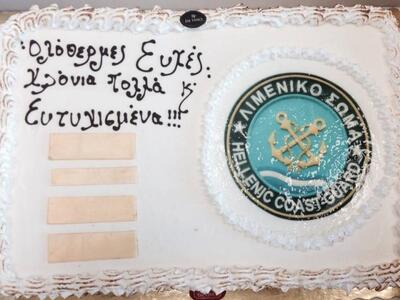 Ολόθερμες Ευχές.
Χρόνια πολλά κ'
Ευτυχισμένα!!!
ΛΙΜΕΝΙΚΟ ΣΩΜΑ
HELLENIC COAST GUARD